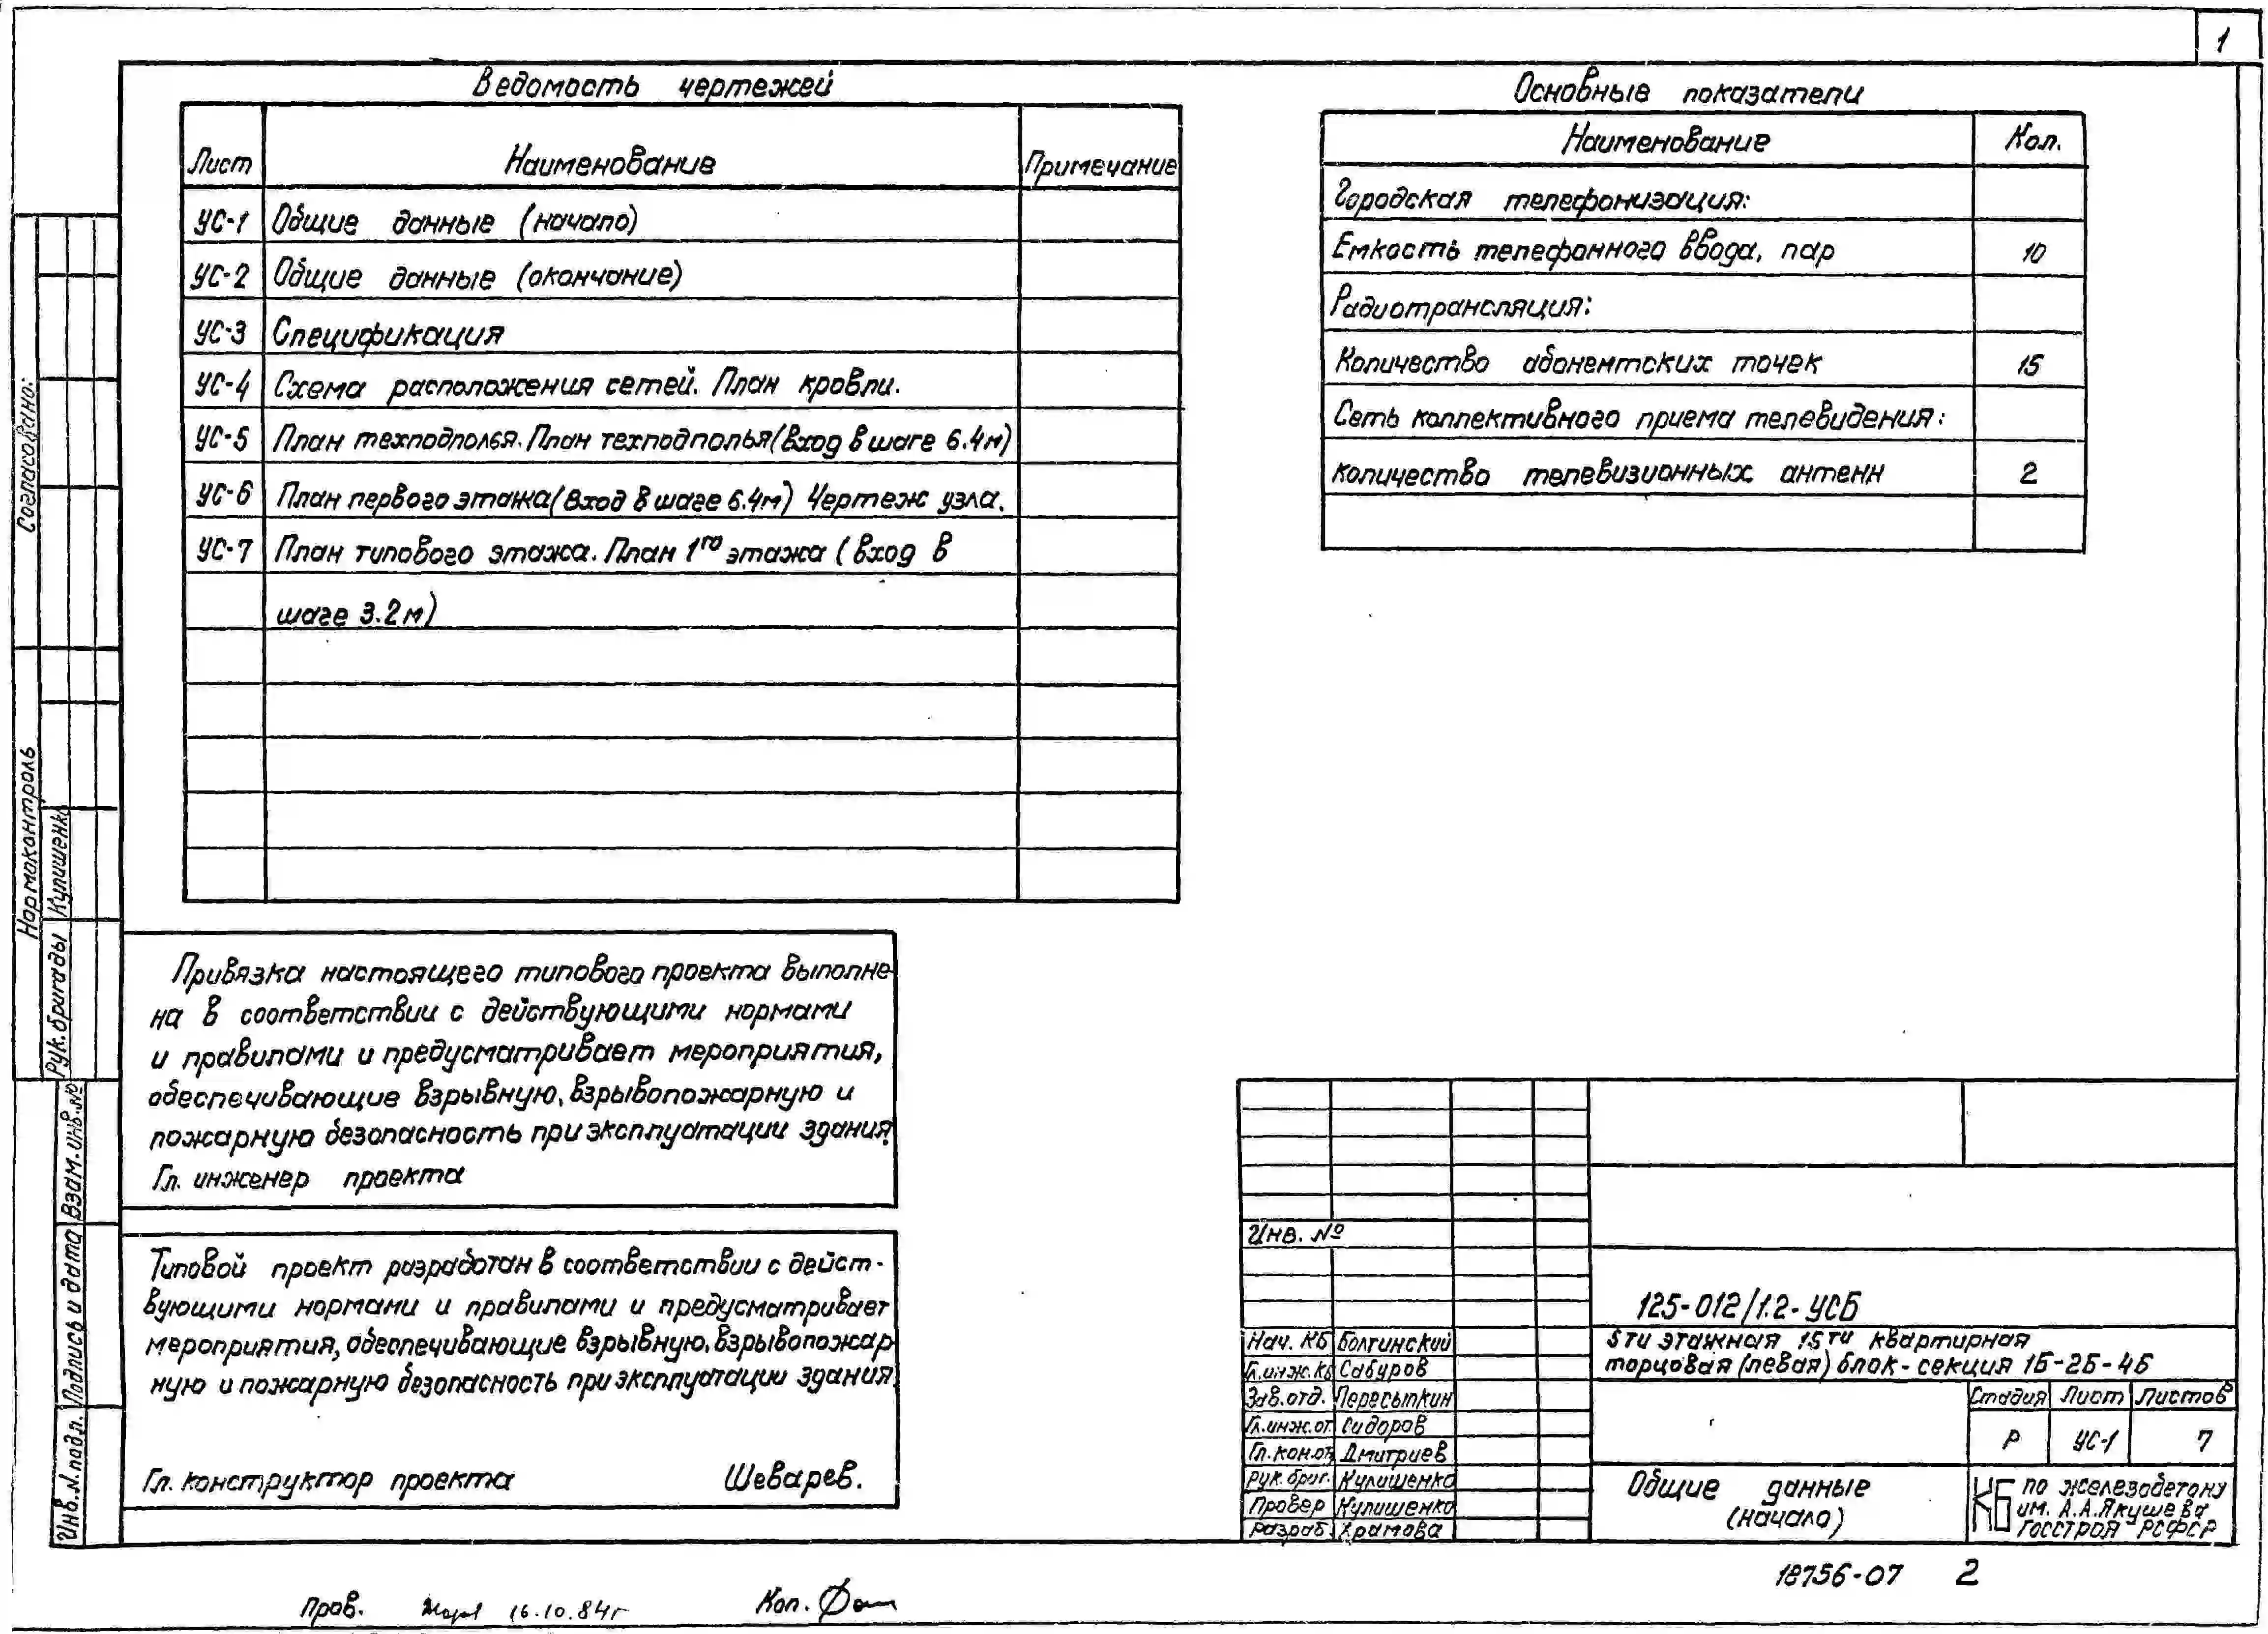 1
Ведомость чертежей
Лист Наименование Примечание
УС-1 Общие данные (начало)
УС-2 Общие данные (окончание)
УС-3 Спецификация
УС-4 Схема расположения сетей. План кровли.
УС-5 План техподполья. План техподполья (вход в шаге 6.4м)
УС-6 План первого этажа (вход в шаге 6.4м) Чертеж узла.
УС-7 План типового этажа. План 1го этажа (вход в
шаге 3.2м)
Основные показатели
Наименование Кол.
Городская телефонизация:
Емкость телефонного ввода, пар 10
Радиотрансляция:
Количество абонентских точек 15
Сеть коллективного приема телевидения:
количество телевизионных антенн 2
Согласовано:
Нормоконтроль
Рук. бригады Кулишенко
Взам. инв. №
Подпись и дата
Инв. № подл.
Привязка настоящего типового проекта выполне-
на в соответствии с действующими нормами
и правилами и предусматривает мероприятия,
обеспечивающие взрывную, взрывопожарную и
пожарную безопасность при эксплуатации здания.
Гл. инженер проекта
Типовой проект разработан в соответствии с дейст-
вующими нормами и правилами и предусматривает
мероприятия, обеспечивающие взрывную, взрывопожар-
ную и пожарную безопасность при эксплуатации здания.
Гл. конструктор проекта Шеварев.
Инв. №
Нач. КБ Болгинский
Гл. инж. КБ Сабуров
Зав. отд. Пересыпкин
Гл. инж. от. Сидоров
Гл. кон. от. Дмитриев
Рук. бриг. Кулишенко
Провер Кулишенко
Разраб. Храмова
125-012/1.2-УСБ
5ти этажная 15ти квартирная
торцовая (левая) блок-секция 1Б-2Б-4Б
Стадия Лист Листов
Р УС-1 7
Общие данные
(начало)
КБ по железобетону
им. А.А.Якушева
Госстроя РСФСР
18756-07 2
Пров. 16.10.84г Коп.